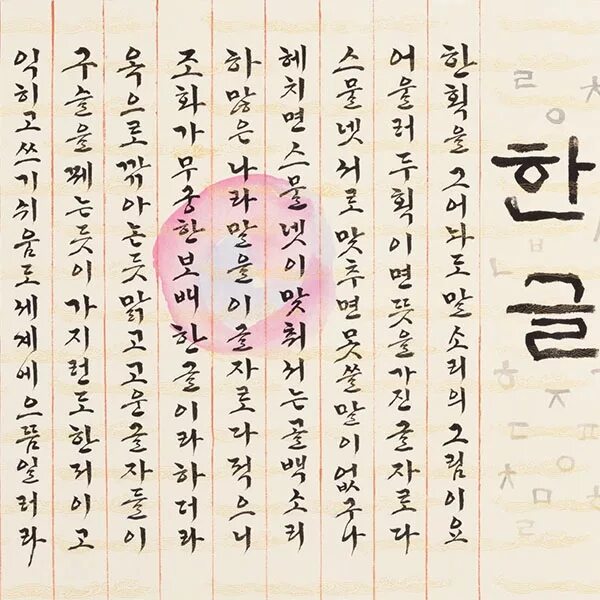 한글
한획을그어놔도말소리의그림이요
어울러두획이면뜻을가진글자로다
스물넷서로맞추면못쓸말이없구나
헤치면스물넷이맞춰서는골백소리
하많은나라말을이글자로다적으니
조화가무궁한보배한글이라하더라
옥으로깎아논듯맑고고운글자들이
구슬을꿰는듯이가지런도한저이고
익히고쓰기쉬움도세계에으뜸일러라